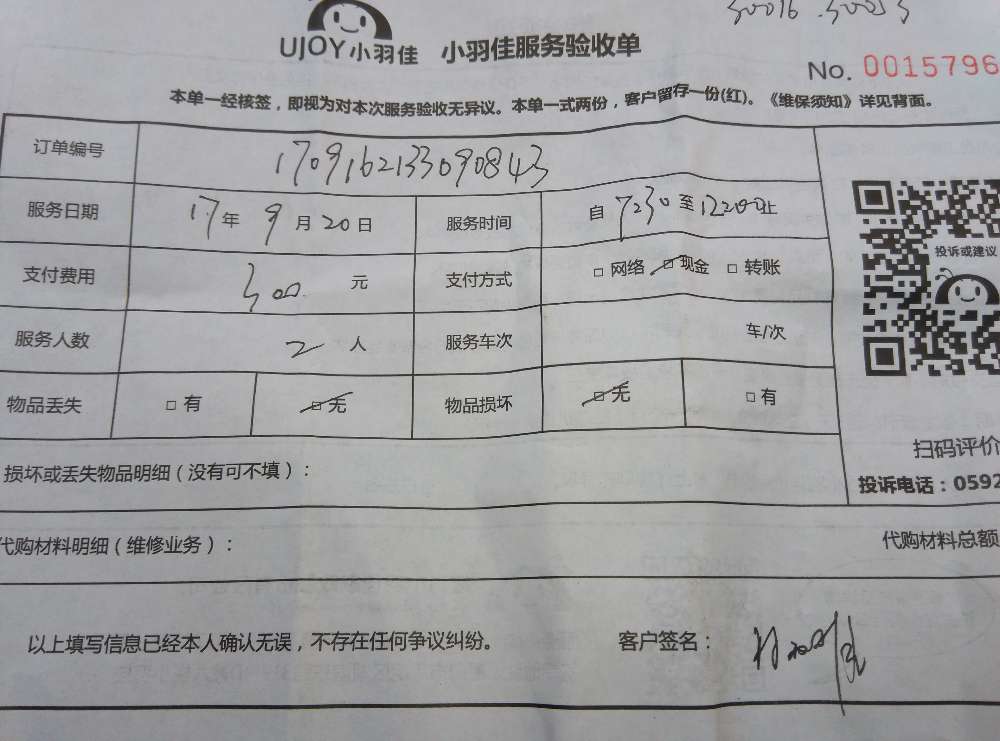 UJOY小羽佳 小羽佳服务验收单
No. 0015796
本单一经核签，即视为对本次服务验收无异议。本单一式两份，客户留存一份(红)。《维保须知》详见背面。
订单编号 1709162133090843
服务日期 17年9月20日 服务时间 自7:30至12:00止
支付费用 300元 支付方式 □网络 □现金 □转账
服务人数 2人 服务车次 车/次
物品丢失 □有 □无 物品损坏 □无 □有
投诉或建议
扫码评价
投诉电话：0592
损坏或丢失物品明细（没有可不填）：
代购材料明细（维修业务）： 代购材料总额
以上填写信息已经本人确认无误，不存在任何争议纠纷。 客户签名：